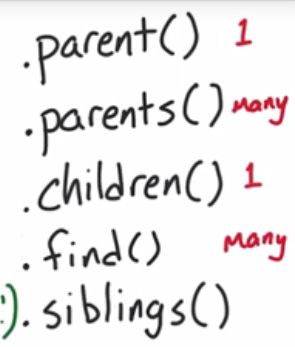 .parent() 1
.parents() Many
.children() 1
.find() Many
:). siblings()